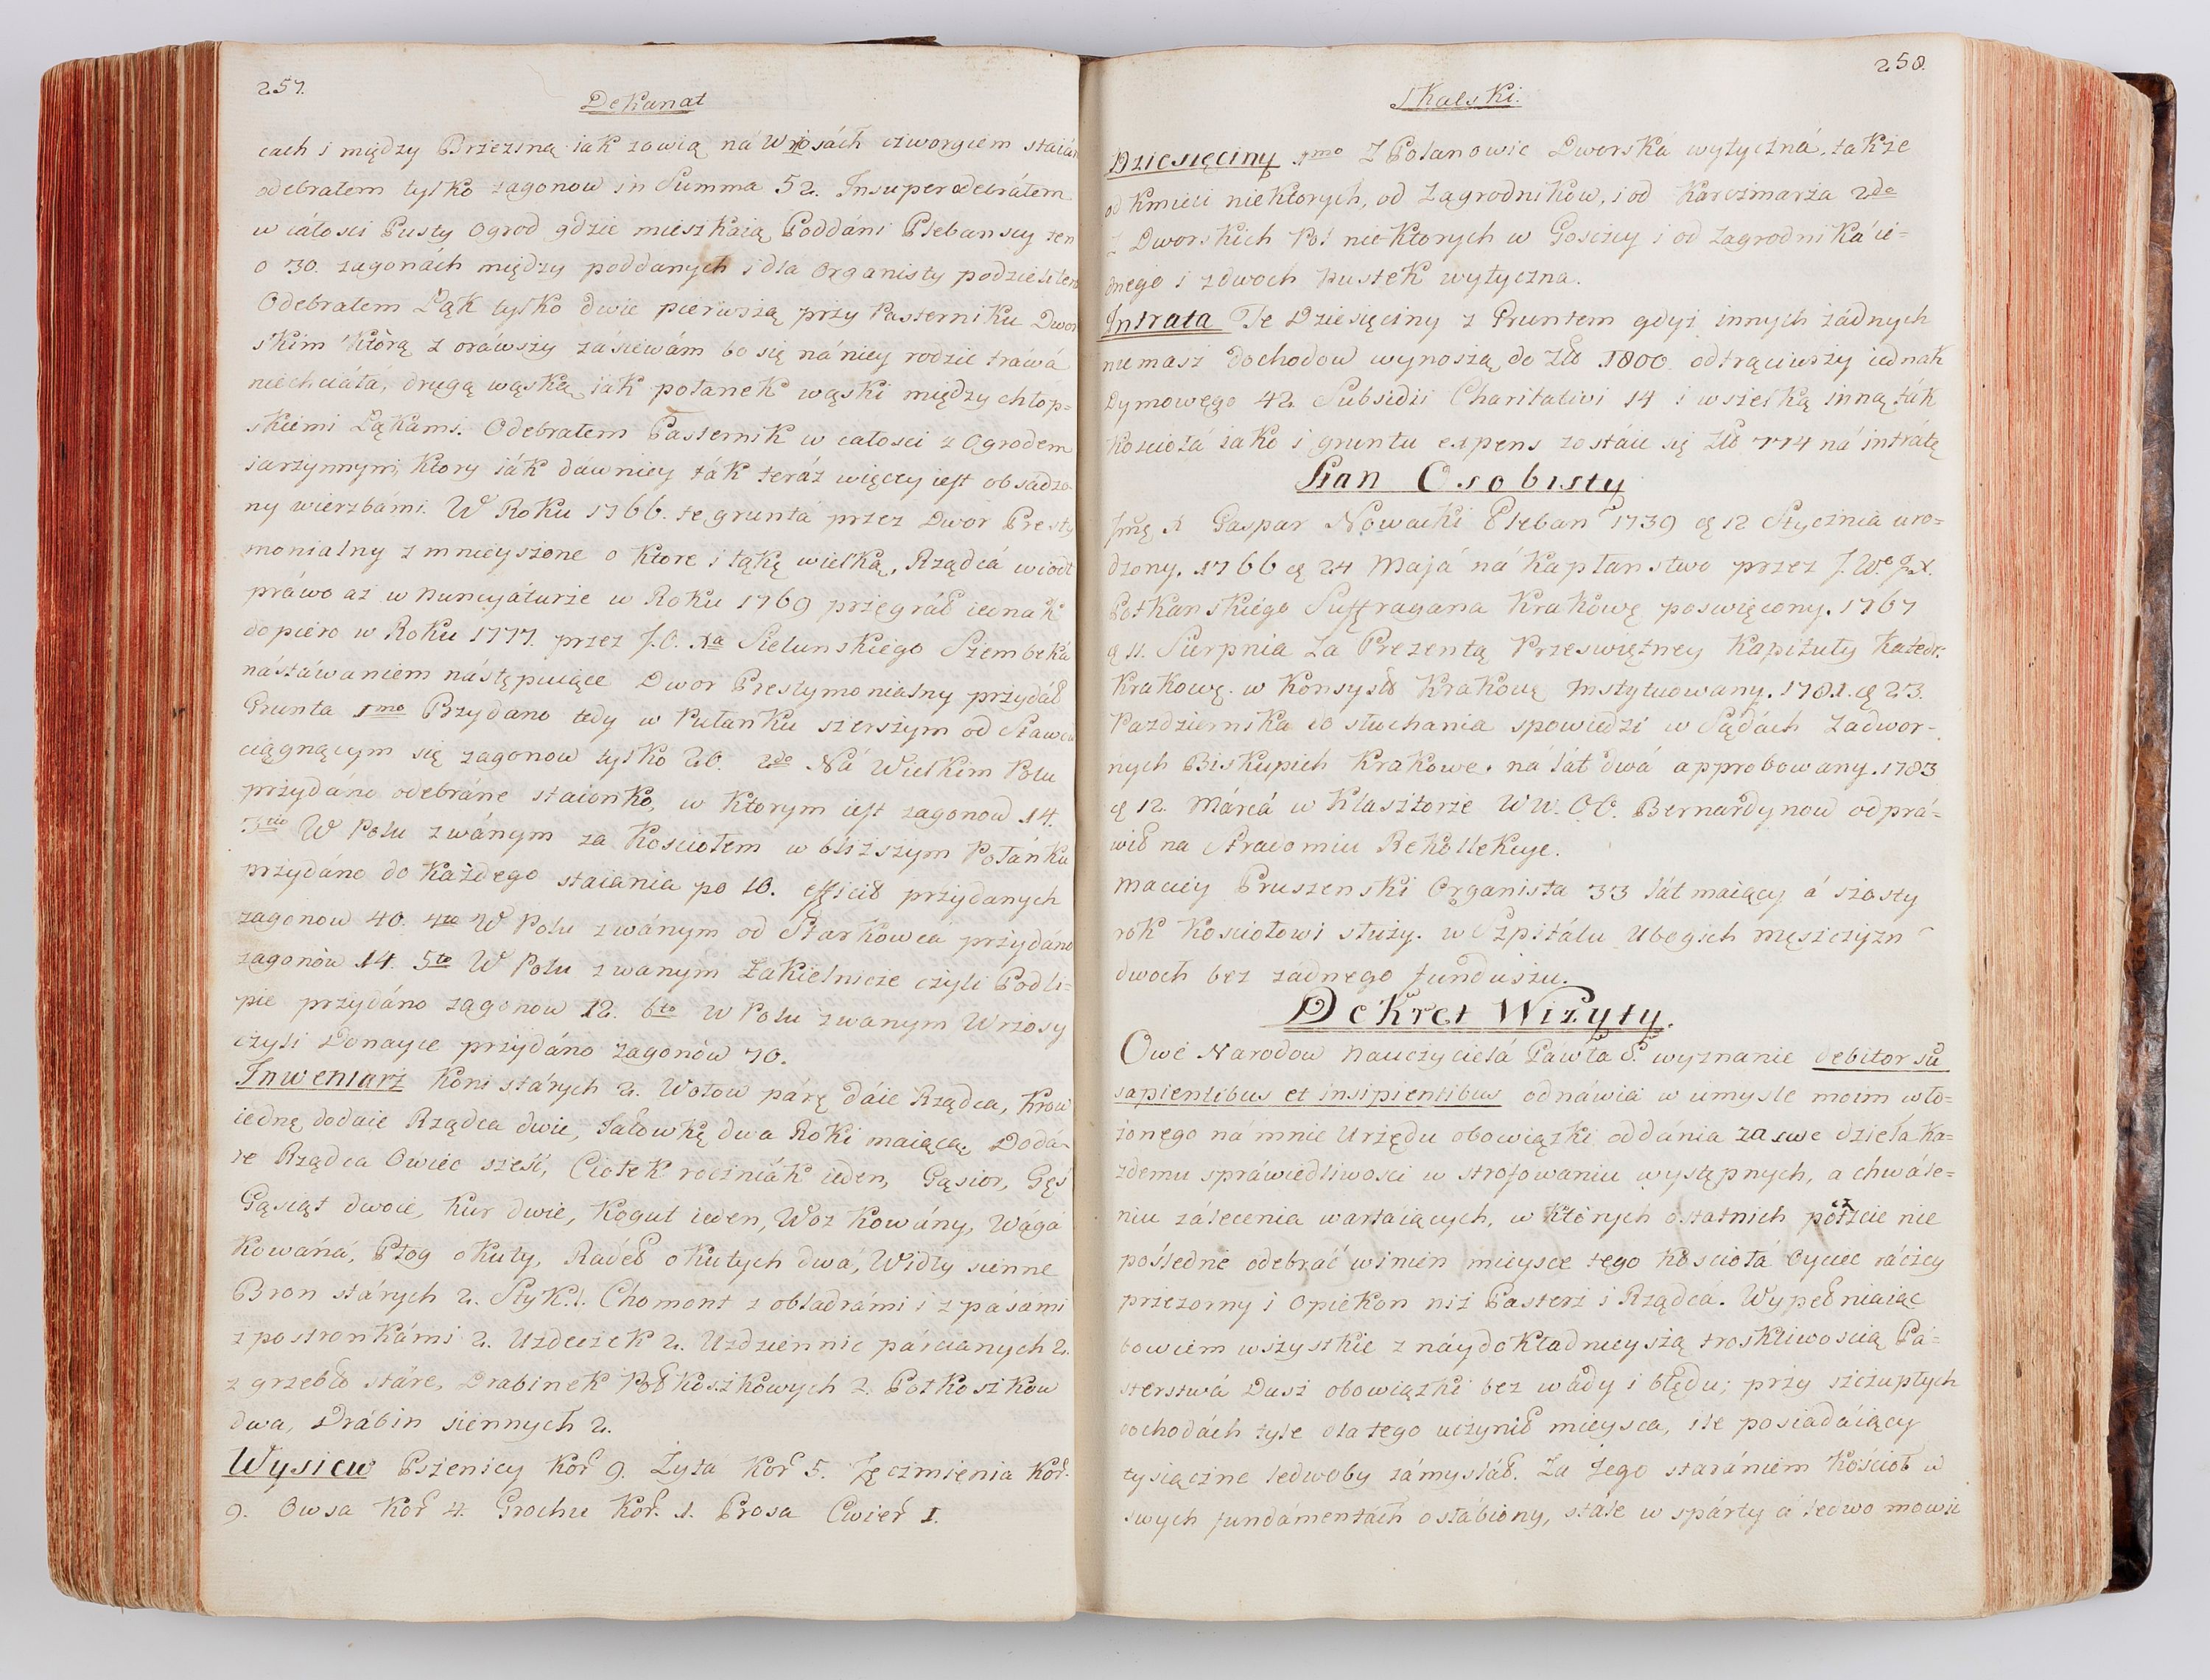 257.
Dekanat
cach i między Brzeziną iak zowią ná Wrzosách czworgiem staián
odebrałem tylko zagonow in Summa 52. Insuper odebráłem
w cáłosci Pusty Ogrod gdzie mieszkaią Poddáni Plebanscy ten
o 30. zagonách między poddanych i dla Organisty podzieliłem
Odebrałem Łąk tylko dwie pierwszą przy Pasterniku Dwor
skim którą z oráwszy zásiewám bo się ná niey rodzić tráwá
niechciáłá, drugą wąską iak połanek wąski między chłop=
skiemi Łąkámi. Odebrałem Pasternik w całosci z Ogrodem
iarzynnym, ktory iák dáwniey ták teráz więcey iest obsadzo
ny wierzbámi. W Roku 1766. te grunta przez Dwor Presty
monialny zmnieyszone o ktore i łąkę wielką, Rządcá wiodł
práwo aż w Nuncyáturze w Roku 1769 przegráł iednak
dopiero w Roku 1777. przez J.O. Xa Sielunskiego Szembeká
nástáwaniem nástępuiące Dwor Prestymonialny przydáł
Grunta 1mo Przydano tedy w Pułanku szerszym od Stawu
ciągnącym się zagonow tylko 20. 2do Ná Wielkim Polu
przydáno odebráne staionko, w ktorym iest zagonow 14.
3tio W Polu zwánym za Kosciołem w bliższym Połánku
przydáno do każdego staiania po 10. efficit przydanych
zagonow 40. 4to W Polu zwánym od Starkowca przydáno
zagonów 14. 5to W Polu zwanym Zakielnicze czyli Podli=
pie przydáno zagonow 12. 6to W Polu zwanym Wrzosy
czyli Donayce przydáno zagonów 70.
Inwentarz Koni stárych 2. Wołow párę dáie Rządca, Krow
iednę dodaie Rządca dwie, Jałowkę dwa Roki maiącą, Dodá-
ie Rządca Owiec sześć, Ciołek roczniák ieden, Gąsior, Gęś
Gąsiąt dwoie, Kur dwie, Kogut ieden, Woz Kowány, Wágá
Kowáná, Pług okuty, Radeł okutych dwá, Widły sienne
Bron stárych 2. Styk.1. Chomont z obladrámi i z pásami
z postronkámi 2. Uzdeczek 2. Uzdziennic párcianych 2.
zgrzebło stáre, Drabinek Półkoszkowych 2. Połkoszkow
dwa, Drábin siennych 2.
Wysiew Pszenicy Kor 9. Żyta Kor 5. Jęczmienia Kor.
9. Owsa Kor 4. Grochu Kor. 1. Prosa Cwierć 1.
258.
Skalski.
Dziesięciny 1mo Z Polanowic Dworská wytyczná, także
od Kmieci niektorych, od Zagrodników, i od Karczmarza 2do
Z Dworskich Pol niektorych w Goszczy i od Zagrodniká ie=
dnego i z dwoch pustek wytyczna.
Intrata Te Dziesięciny z Gruntem gdyż innych żádnych
niemasz dochodow wynoszą do Zło 1800. odtrąciwszy iednak
Dymowego 42. Subsidii Charitativi 14 i wszelką inną ták
Koscioła iako i gruntu expens zostáie się Zło 774 ná intrátę
Stan Osobisty
Jmę X Gaspar Nowacki Pleban 1739 ą 12 Stycznia uro=
dzony. 1766 ą 24 Maja ná Kapłanstwo przez J.We J.X.
Potkanskiego Suffragana Krakowę poswięcony. 1767
ą 11. Sierpnia Za Prezentą Przeswiętney Kapituły Katedr:
Krakowę. w Konsysto Krakowę Instytuowany. 1781. ą 23.
Pazdziernika do słuchania spowiedzi w Sądách Zadwor-
nych Biskupich Krakowę. ná lát dwá approbowany. 1783
ą 12. Márcá w Klasztorze WW.OO. Bernardynow odprá=
wił na Stradomiu Rekollekcye.
Maciey Pruszenski Organista 33 lát maiący á szosty
rok Kosciołowi służy. w Szpitálu Ubogich męszczyzn
dwoch bez żadnego funduszu.
Dekret Wizyty.
Owe Narodow Nauczycielá Páwłá S. wyznanie debitor su
sapientibus et insipientibus odnáwia w umysle moim wło-
żonego ná mnie Urzędu obowiązki oddánia za swe dzieła Ka=
żdemu spráwiedliwosci w strofowaniu występnych, a chwále=
niu zálecenia wartaiących, w których ostatnich poczcie nie
pośledne odebráć winien mieysce tego Koscioła Oyciec ráczey
przezorny i Opiekon niż Pasterz i Rządcá. Wypełniaiąc
bowiem wszystkie z náydokładnieyszą troskliwoscią Pá=
sterstwá Dusz obowiązki bez wády i błędu; przy szczupłych
dochodách tyle dla tego uczynił mieysca, ile posiadáiący
tysiączne ledwoby zámysláł. Za Jego staraniem Kościoł w
swych fundámentách osłábiony, stále wspárty á ledwo mowić